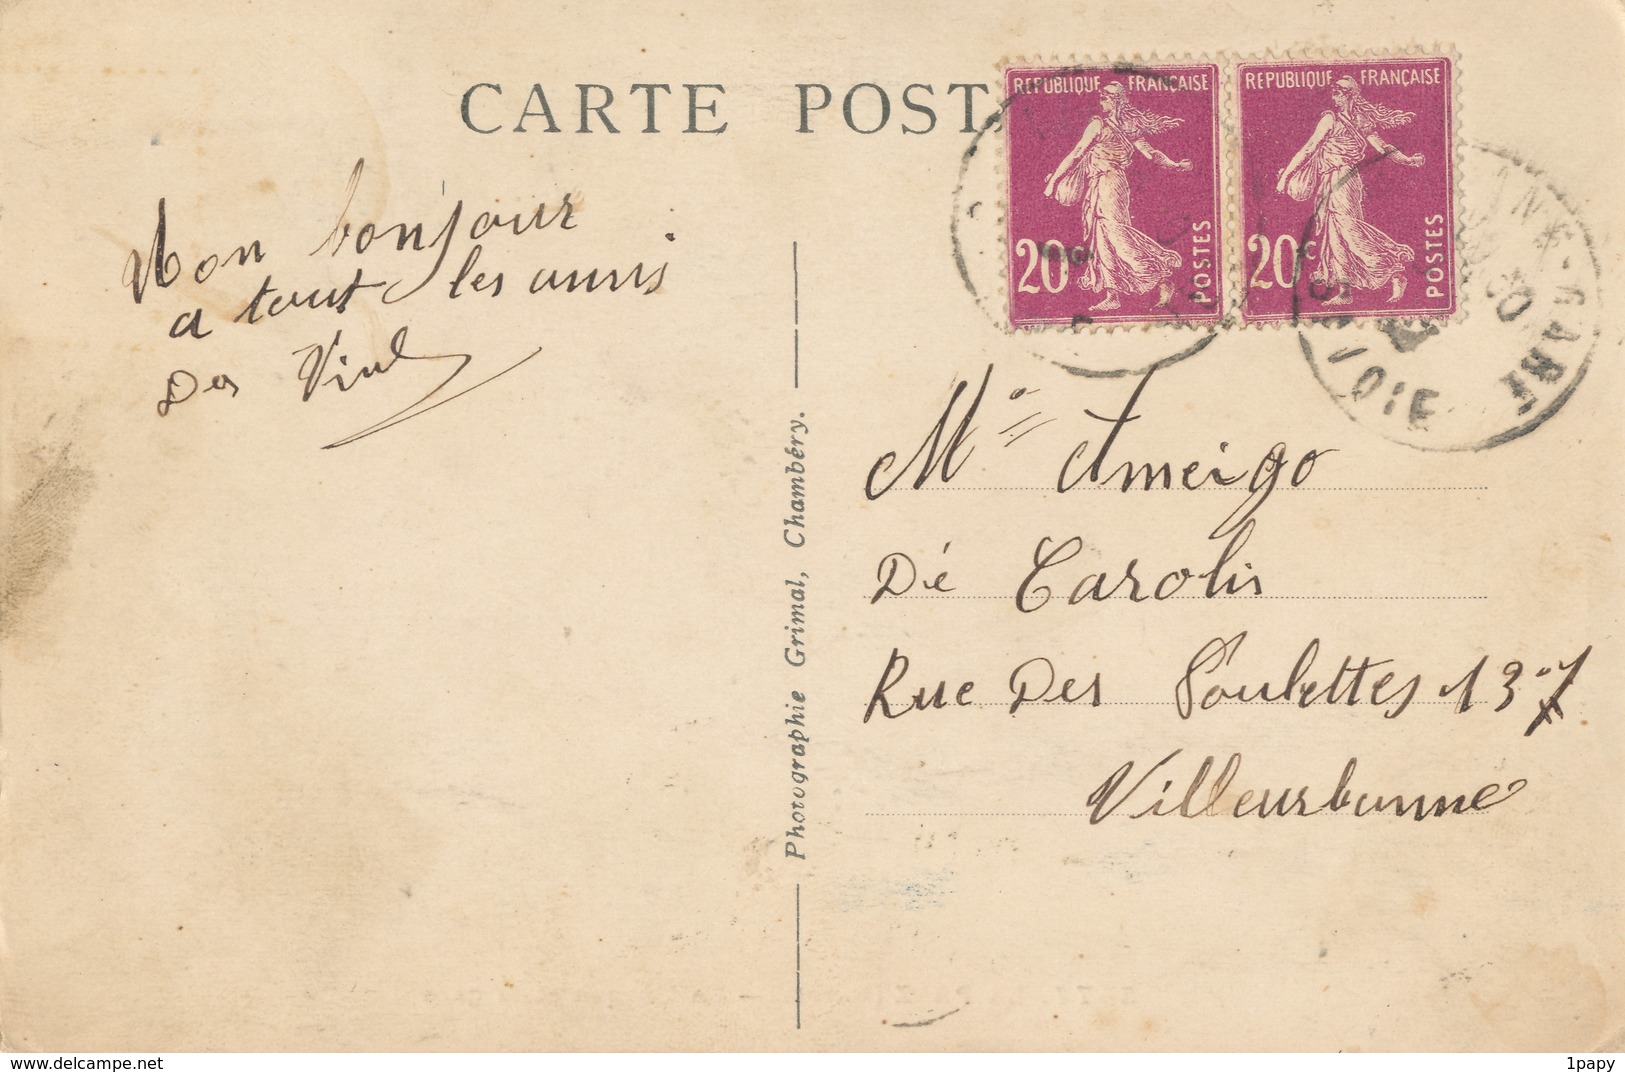 CARTE POST
REPUBLIQUE FRANÇAISE
20
POSTES
REPUBLIQUE FRANÇAISE
20c
POSTES
GARE
Mon bonjour
a tout les amis
Des
Photographie Grimal, Chambéry.
Ameigo
Dé Carolis
Rue Des Poulettes 137
Villeurbanne
www.delcampe.net
1papy